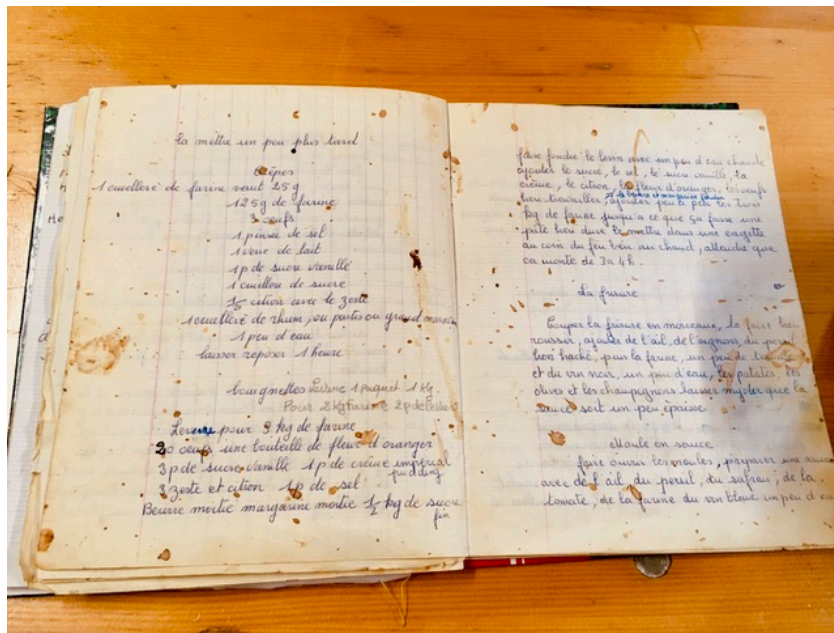 la mettre un peu plus tard
Crêpes
1 cuillere de farine vaut 25 g
125 g de farine
3 oeufs
1 pincée de sel
1 verre de lait
1 p de sucre vanillé
1 cuillere de sucre
1/2 citron avec le zeste
1 cuillere de rhum, ou pastis ou grand
1 peu d'eau
laisser reposer 1 heure
beugnettes Levure 1 paquet 1 Kg
Pour 2 kg farine 2 p de levure
Levure pour 3 kg de farine
20 oeufs une bouteille de fleur d'oranger
3 p de sucre vanille 1 p de crème impérial
pudding
3 zeste et citron 1 p de sel
Beurre moitie margarine moitie 1/2 kg de sucre
fin
faire fondre le levin avec un peu d'eau chaude
ajouter le sucre, le sel, le sucre vanillé, la
crème, le citron, la fleur d'oranger, les oeufs
le beurre et margarine fondu
bien travailler, ajouter peu à peu les trois
kg de farine jusqu'a ce que ça fasse une
pâte bien dure la mettre dans une
au coin du feu bien au chaud, attendre que
ca monte de 3 a 4 h.
La frisure
Couper la frisure en morceaux, la faire bien
roussir, ajouter de l'ail, de l'oignons, du persil
bien haché, puis la farine, un peu de tomate
et du vin noir, un peu d'eau, les patates les
olives et les champignons laisser mijoter que la
sauce soit un peu épaisse
Moule en sauce
faire ouvrir les moules, préparer une sauce
avec de l'ail du persil, du safran, de la
tomate, de la farine du vin blanc un peu d'eau